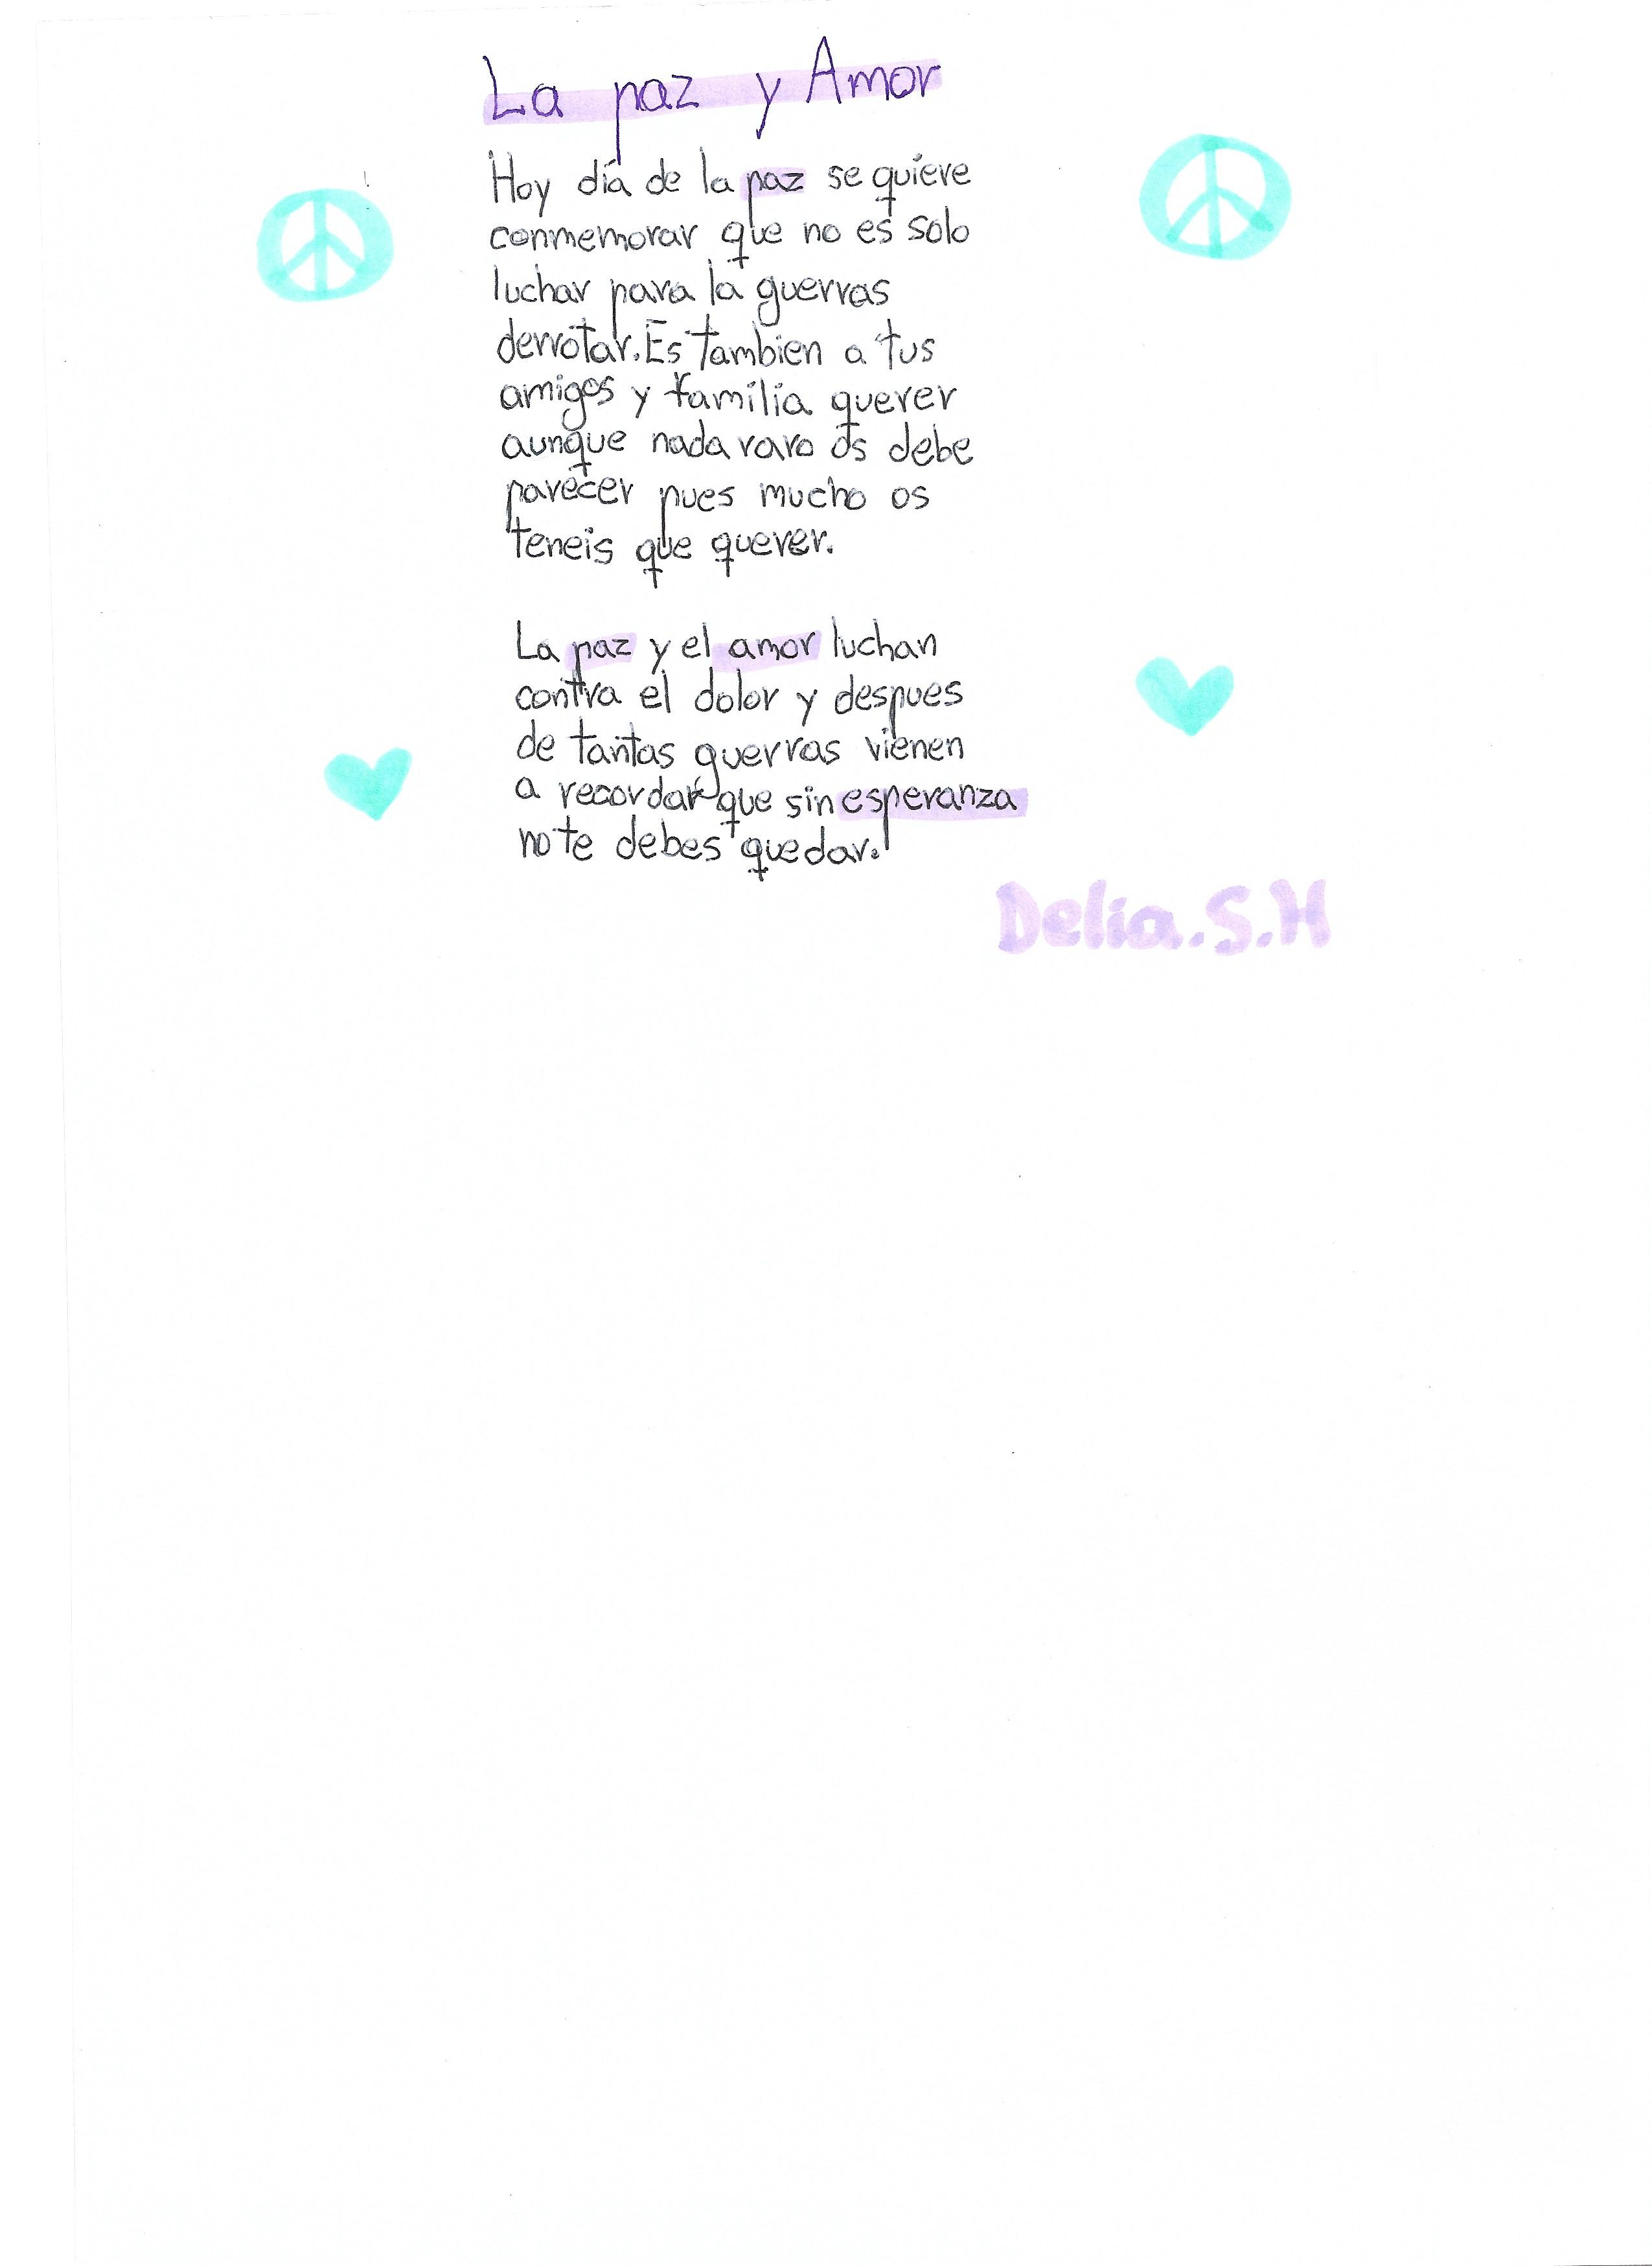 La paz y Amor
Hoy día de la paz se quiere
conmemorar que no es solo
luchar para la guerras
derrotar. Es tambien a tus
amigos y familia querer
aunque nada raro os debe
parecer pues mucho os
teneis que querer.
La paz y el amor luchan
contra el dolor y despues
de tantas guerras vienen
a recordar que sin esperanza
no te debes quedar.
Delia.S.H